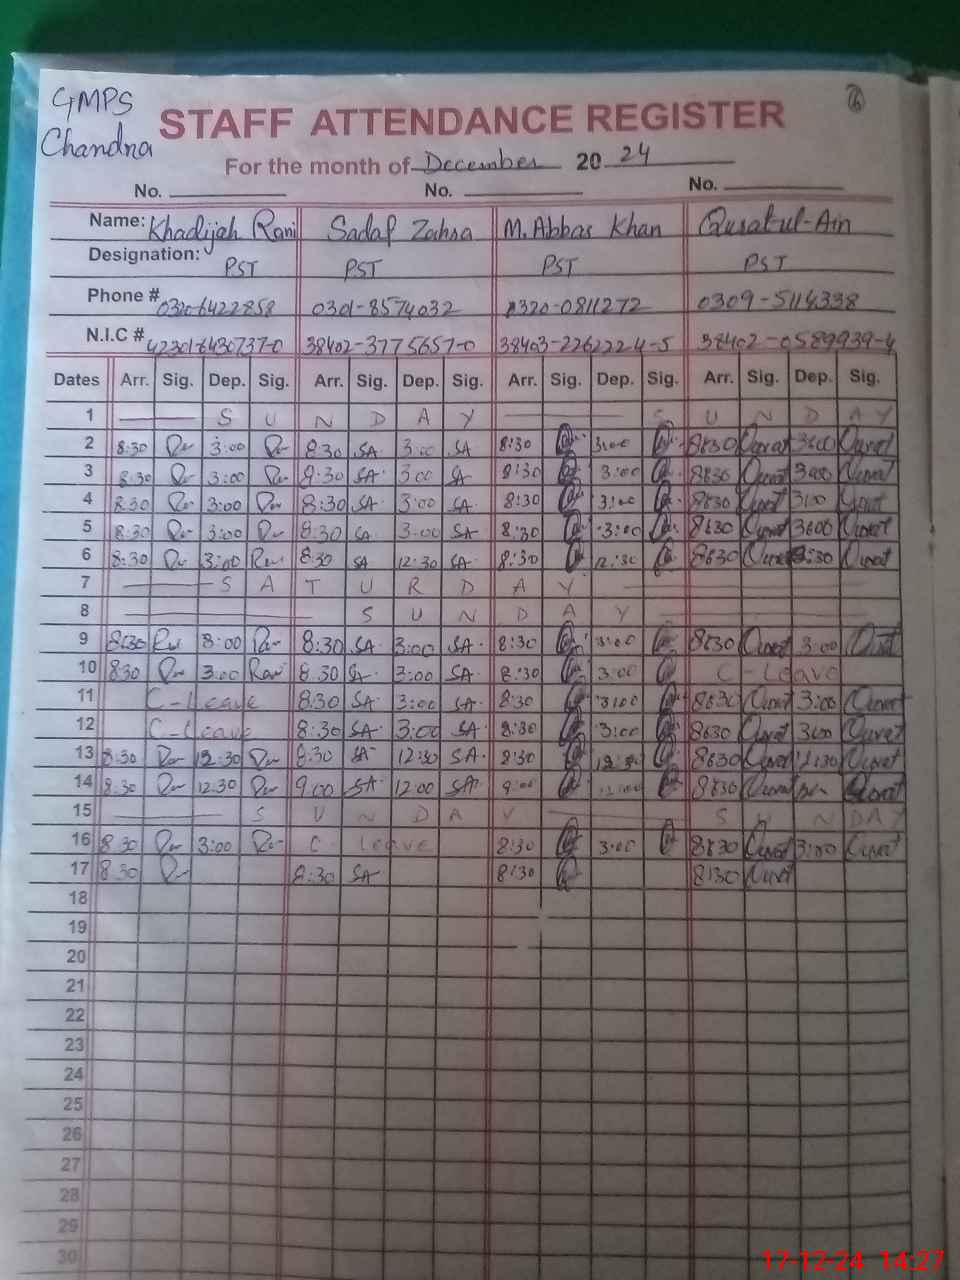 GMPS
Chandna
STAFF ATTENDANCE REGISTER
For the month of December 20 24
No. No. No.
Name: Khadijah Rani Sadaf Zahra M. Abbas Khan Qurat-ul-Ain
Designation: PST PST PST PST
Phone # 0320-6422858 0301-8574032 0320-0811272 0309-5114338
N.I.C # 42301-6430737-0 38402-3775657-0 38403-2262224-5 38402-0589939-4
Dates Arr. Sig. Dep. Sig. Arr. Sig. Dep. Sig. Arr. Sig. Dep. Sig. Arr. Sig. Dep. Sig.
1 S U N D A Y S U N D A Y
2 8:30 3:00 8:30 SA 3:00 SA 8:30 3:00 8:30 Qurat 3:00 Qurat
3 8:30 3:00 8:30 SA 3:00 SA 8:30 3:00 8:30 Qurat 3:00 Qurat
4 8:30 3:00 8:30 SA 3:00 SA 8:30 3:00 8:30 Qurat 3:00 Qurat
5 8:30 3:00 8:30 SA 3:00 SA 8:30 3:00 8:30 Qurat 3:00 Qurat
6 8:30 3:00 8:30 SA 12:30 SA 8:30 12:30 8:30 Qurat Qurat
7 S A T U R D A Y
8 S U N D A Y
9 8:30 3:00 8:30 SA 3:00 SA 8:30 3:00 8:30 Qurat 3:00 Qurat
10 8:30 3:00 8:30 SA 3:00 SA 8:30 3:00 C-Leave
11 C-Leave 8:30 SA 3:00 SA 8:30 3:00 8:30 Qurat 3:00 Qurat
12 C-Leave 8:30 SA 3:00 SA 8:30 3:00 8:30 Qurat 3:00 Qurat
13 8:30 12:30 8:30 SA 12:30 SA 8:30 12:30 8:30 Qurat 12:30 Qurat
14 8:30 12:30 9:00 SA 12:00 SA 9:00 12:00 8:30 Qurat Qurat
15 S U N D A Y S U N D A Y
16 8:30 3:00 C Leave 8:30 3:00 8:30 Qurat 3:00 Qurat
17 8:30 8:30 SA 8:30 8:30 Qurat
18
19
20
21
22
23
24
25
26
27
28
29
30
17-12-24 14:27